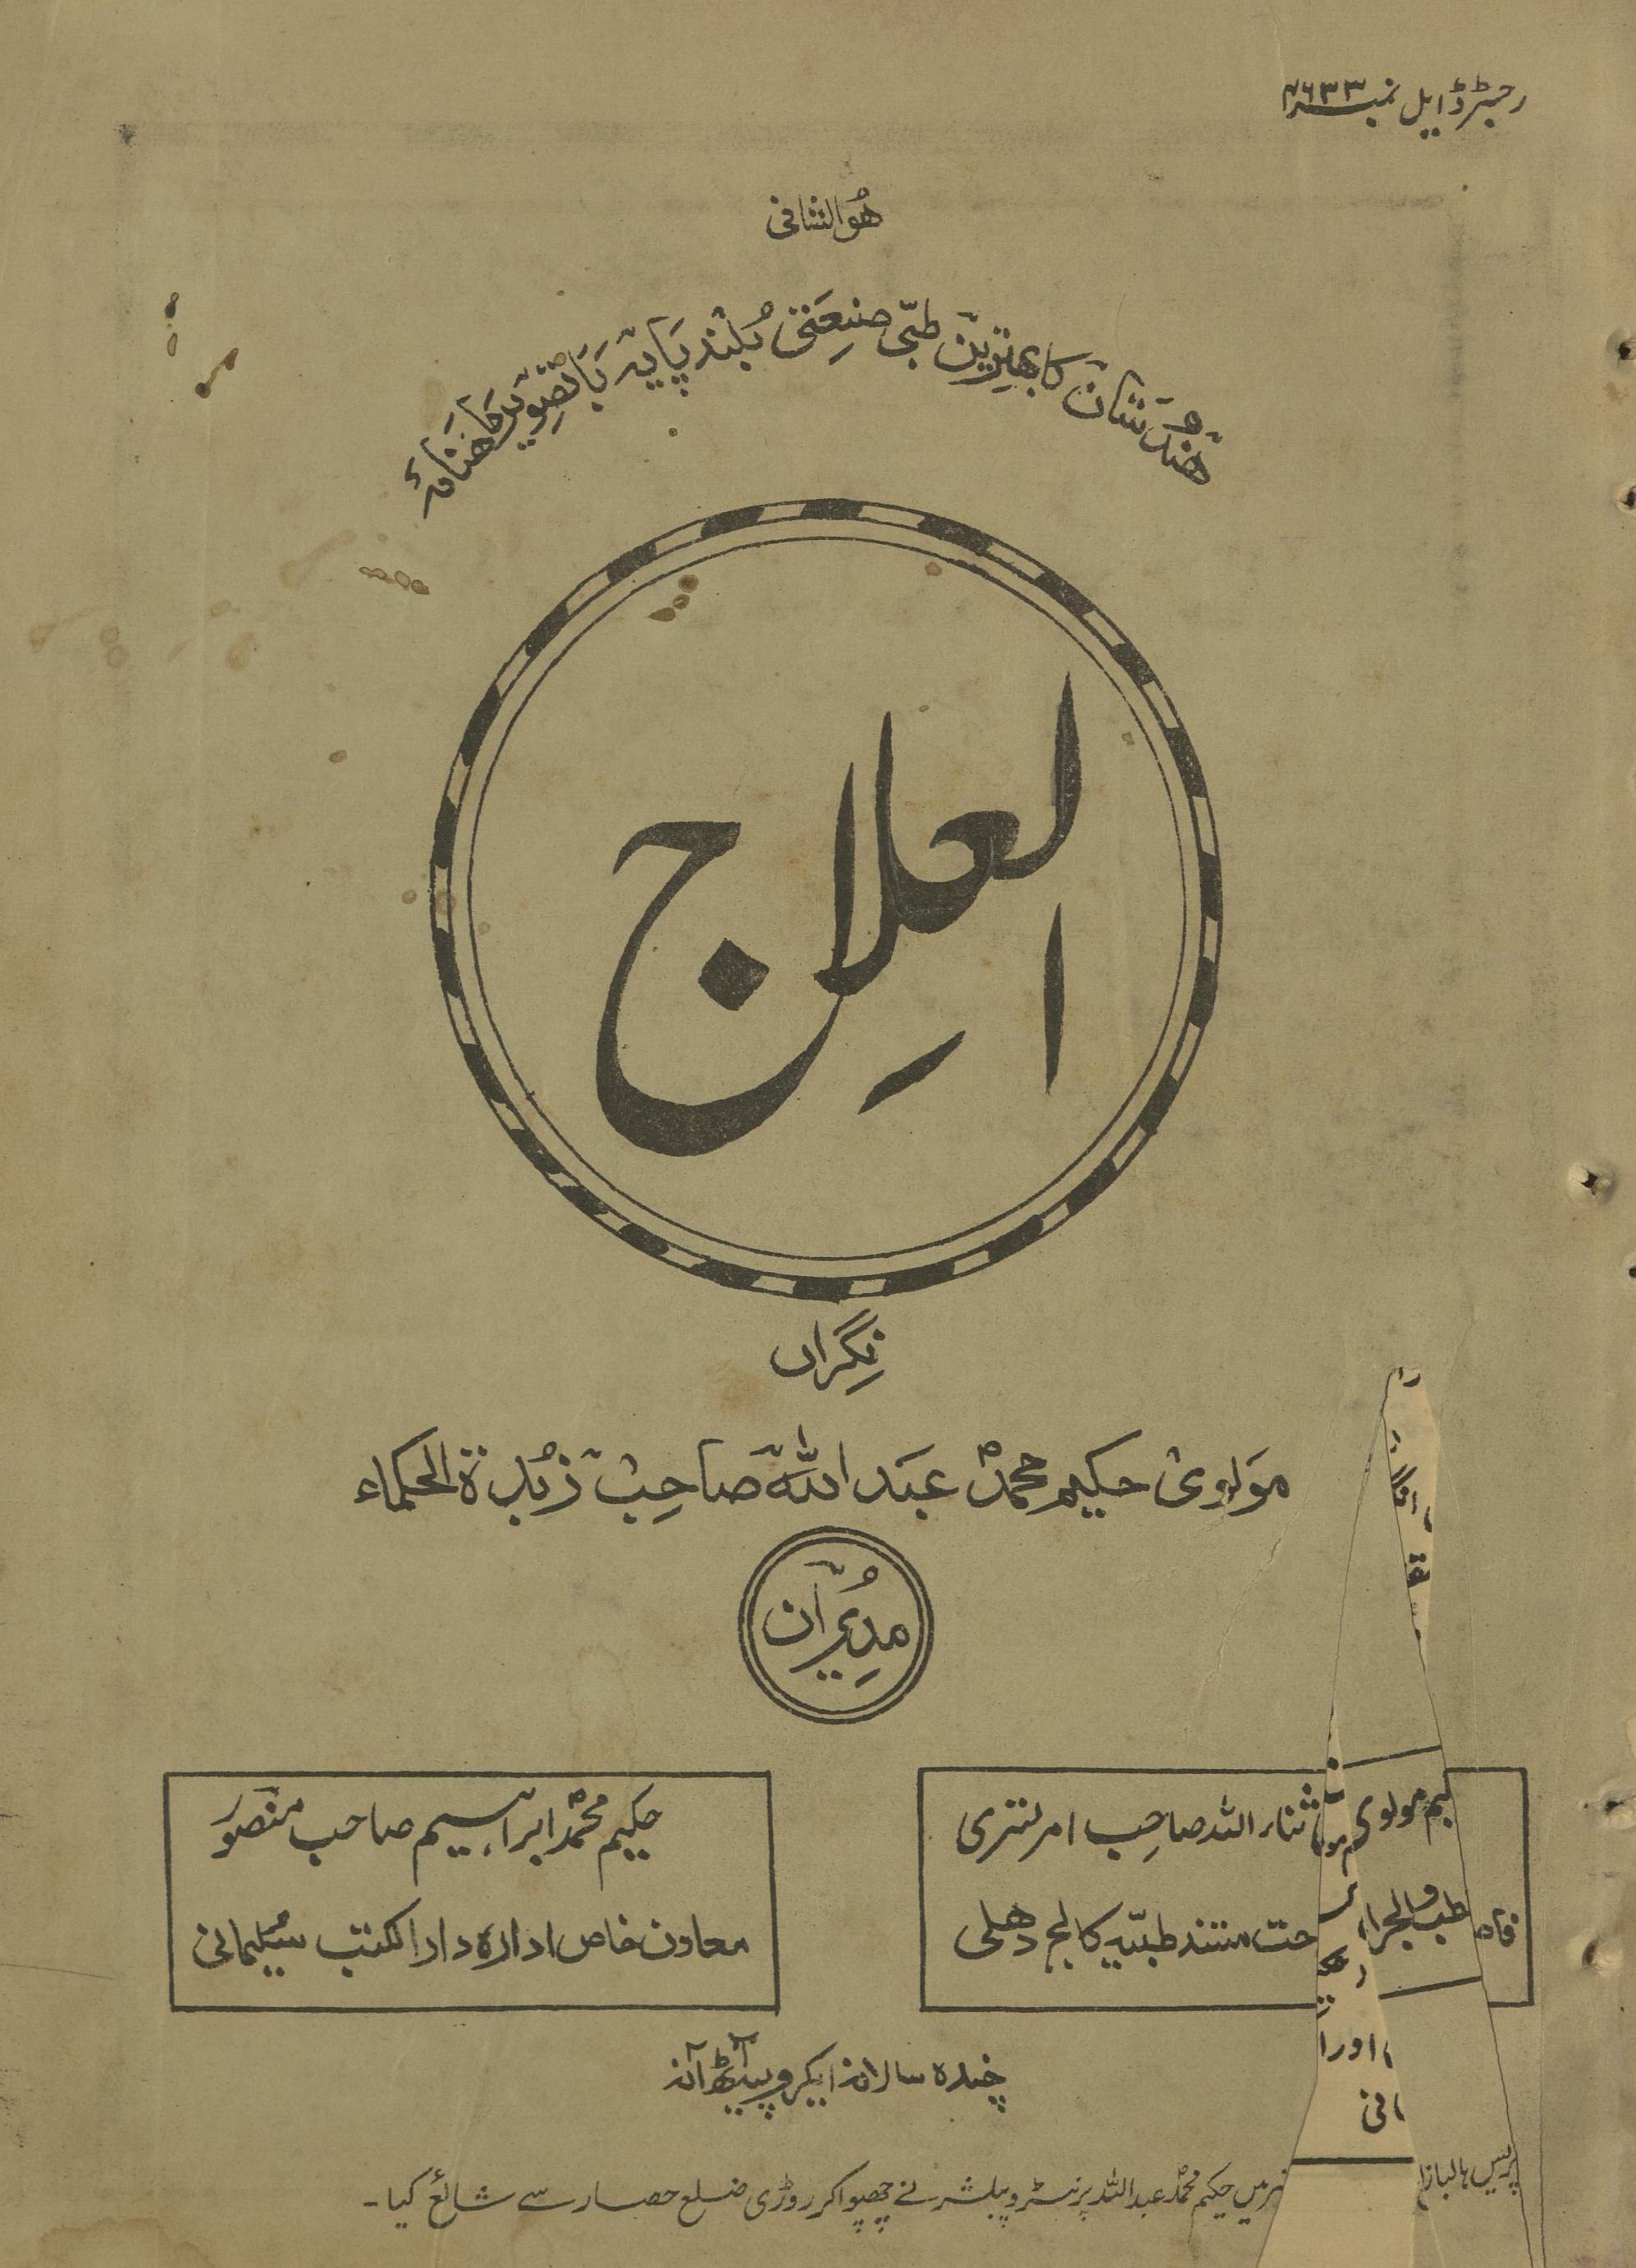 رجسٹرڈ ایل نمبر ۴۶۳۳
ھُوالشافی
ھندوستان کا بہترین طبّی صنعتی بلند پایہ باتصویر ماھنامہ
العلاج
نگراں
مولوی حکیم محمد عبد اللہ صاحب زبدۃ الحکماء
مدیران
مولوی ثناء اللہ صاحب امرتسری
طب والجراحت مستند طبیہ کالج دھلی
حکیم محمد ابراہیم صاحب منصور
معاون خاص ادارہ دارالکتب سلیمانی
چندہ سالانہ ایکروپیہ آٹھ آنہ
پریس ہالبازار میں حکیم محمد عبداللہ پرنٹر و پبلشر نے چھپوا کر روڑی ضلع حصار سے شائع کیا۔